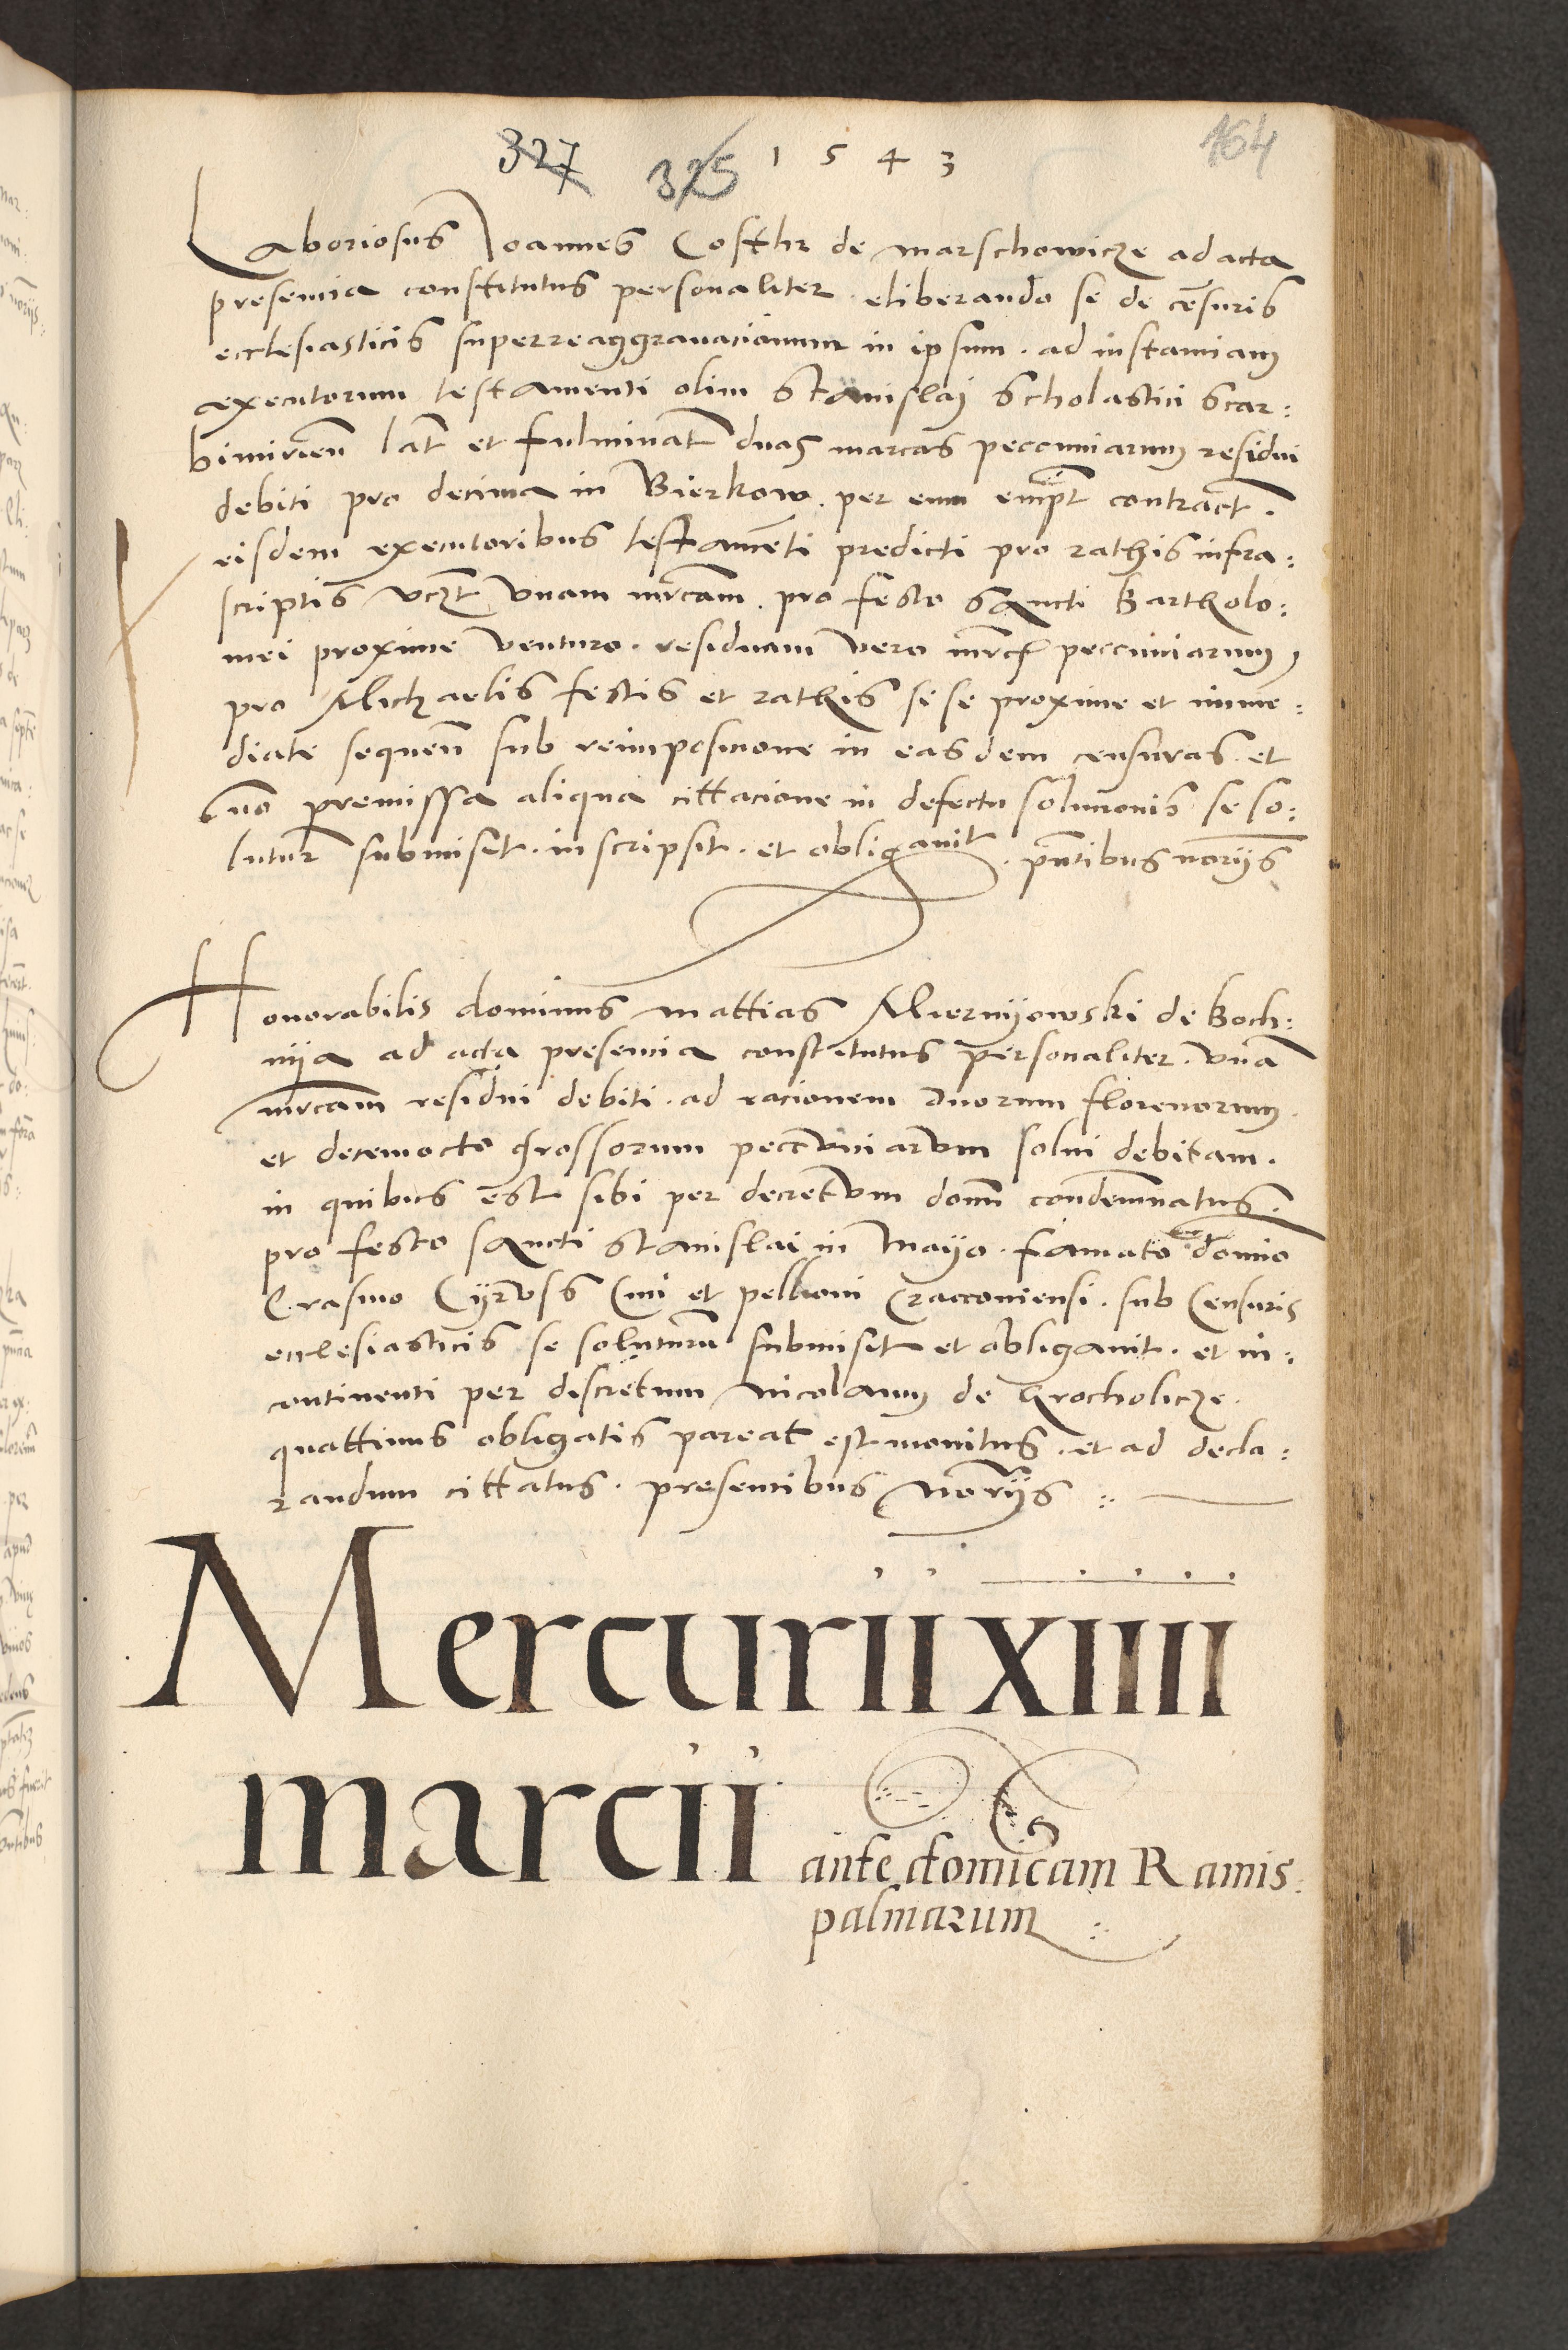 327 325 1 5 4 3 164
Laboriosus Joannes Costhr de marschowicze ad acta
presencia constitutus personaliter eliberando se de cēsuris
ecclesiasticis superreaggrauacionum in ipsum . ad instanciam
executorum testamenti olim Stanislaj Scholastici Scar:
bimirieñ lat̄ et fulminat̄ duas marcas peccuniarum residui
debiti pro decima in Bierkow . per eum empt̄ contract .
eisdem executoribus testamēti predicti pro rathis infra:
scriptis vczt vnam mrcam̄ . pro festo sancti Bartholo:
mei proxime venturo . residuam vero mrc̄ peccuniarum
pro Michaelis festis et rathis se se proxime et imme:
diate sequeñ sub reimposicione in easdem censuras . et
nō premissa aliqua cittacione in defectu solucionis se so:
lutur̄ submiset . inscripsit . et obligauit . pn̄tibus norijs
Honorabilis dominus mattias Miernijowski de Boch:
nija ad acta presencia constitutus personaliter . vnā
mrcam̄ residui debiti . ad racionem duorum florenorum .
et decemocto grossorum peccuniarum solui debitam .
in quibus est sibi per decretum domn̄ condemnatus .
pro festo sancti Stanislai in Mayo . famato domīo
Erasmo Cyrvss Ciui et pellioni Cracouiensi . sub Censuris
ecclesiasticis se soluturū submiset et obligauit . et in:
continenti per discretum Nicolaum de Grocholicze .
quattinus obligatis pareat est monitus . et ad decla:
randum cittatus . presentibus Norijs :
Mercurii XIIII
marcii
ante domīcam Ramis
palmarum :